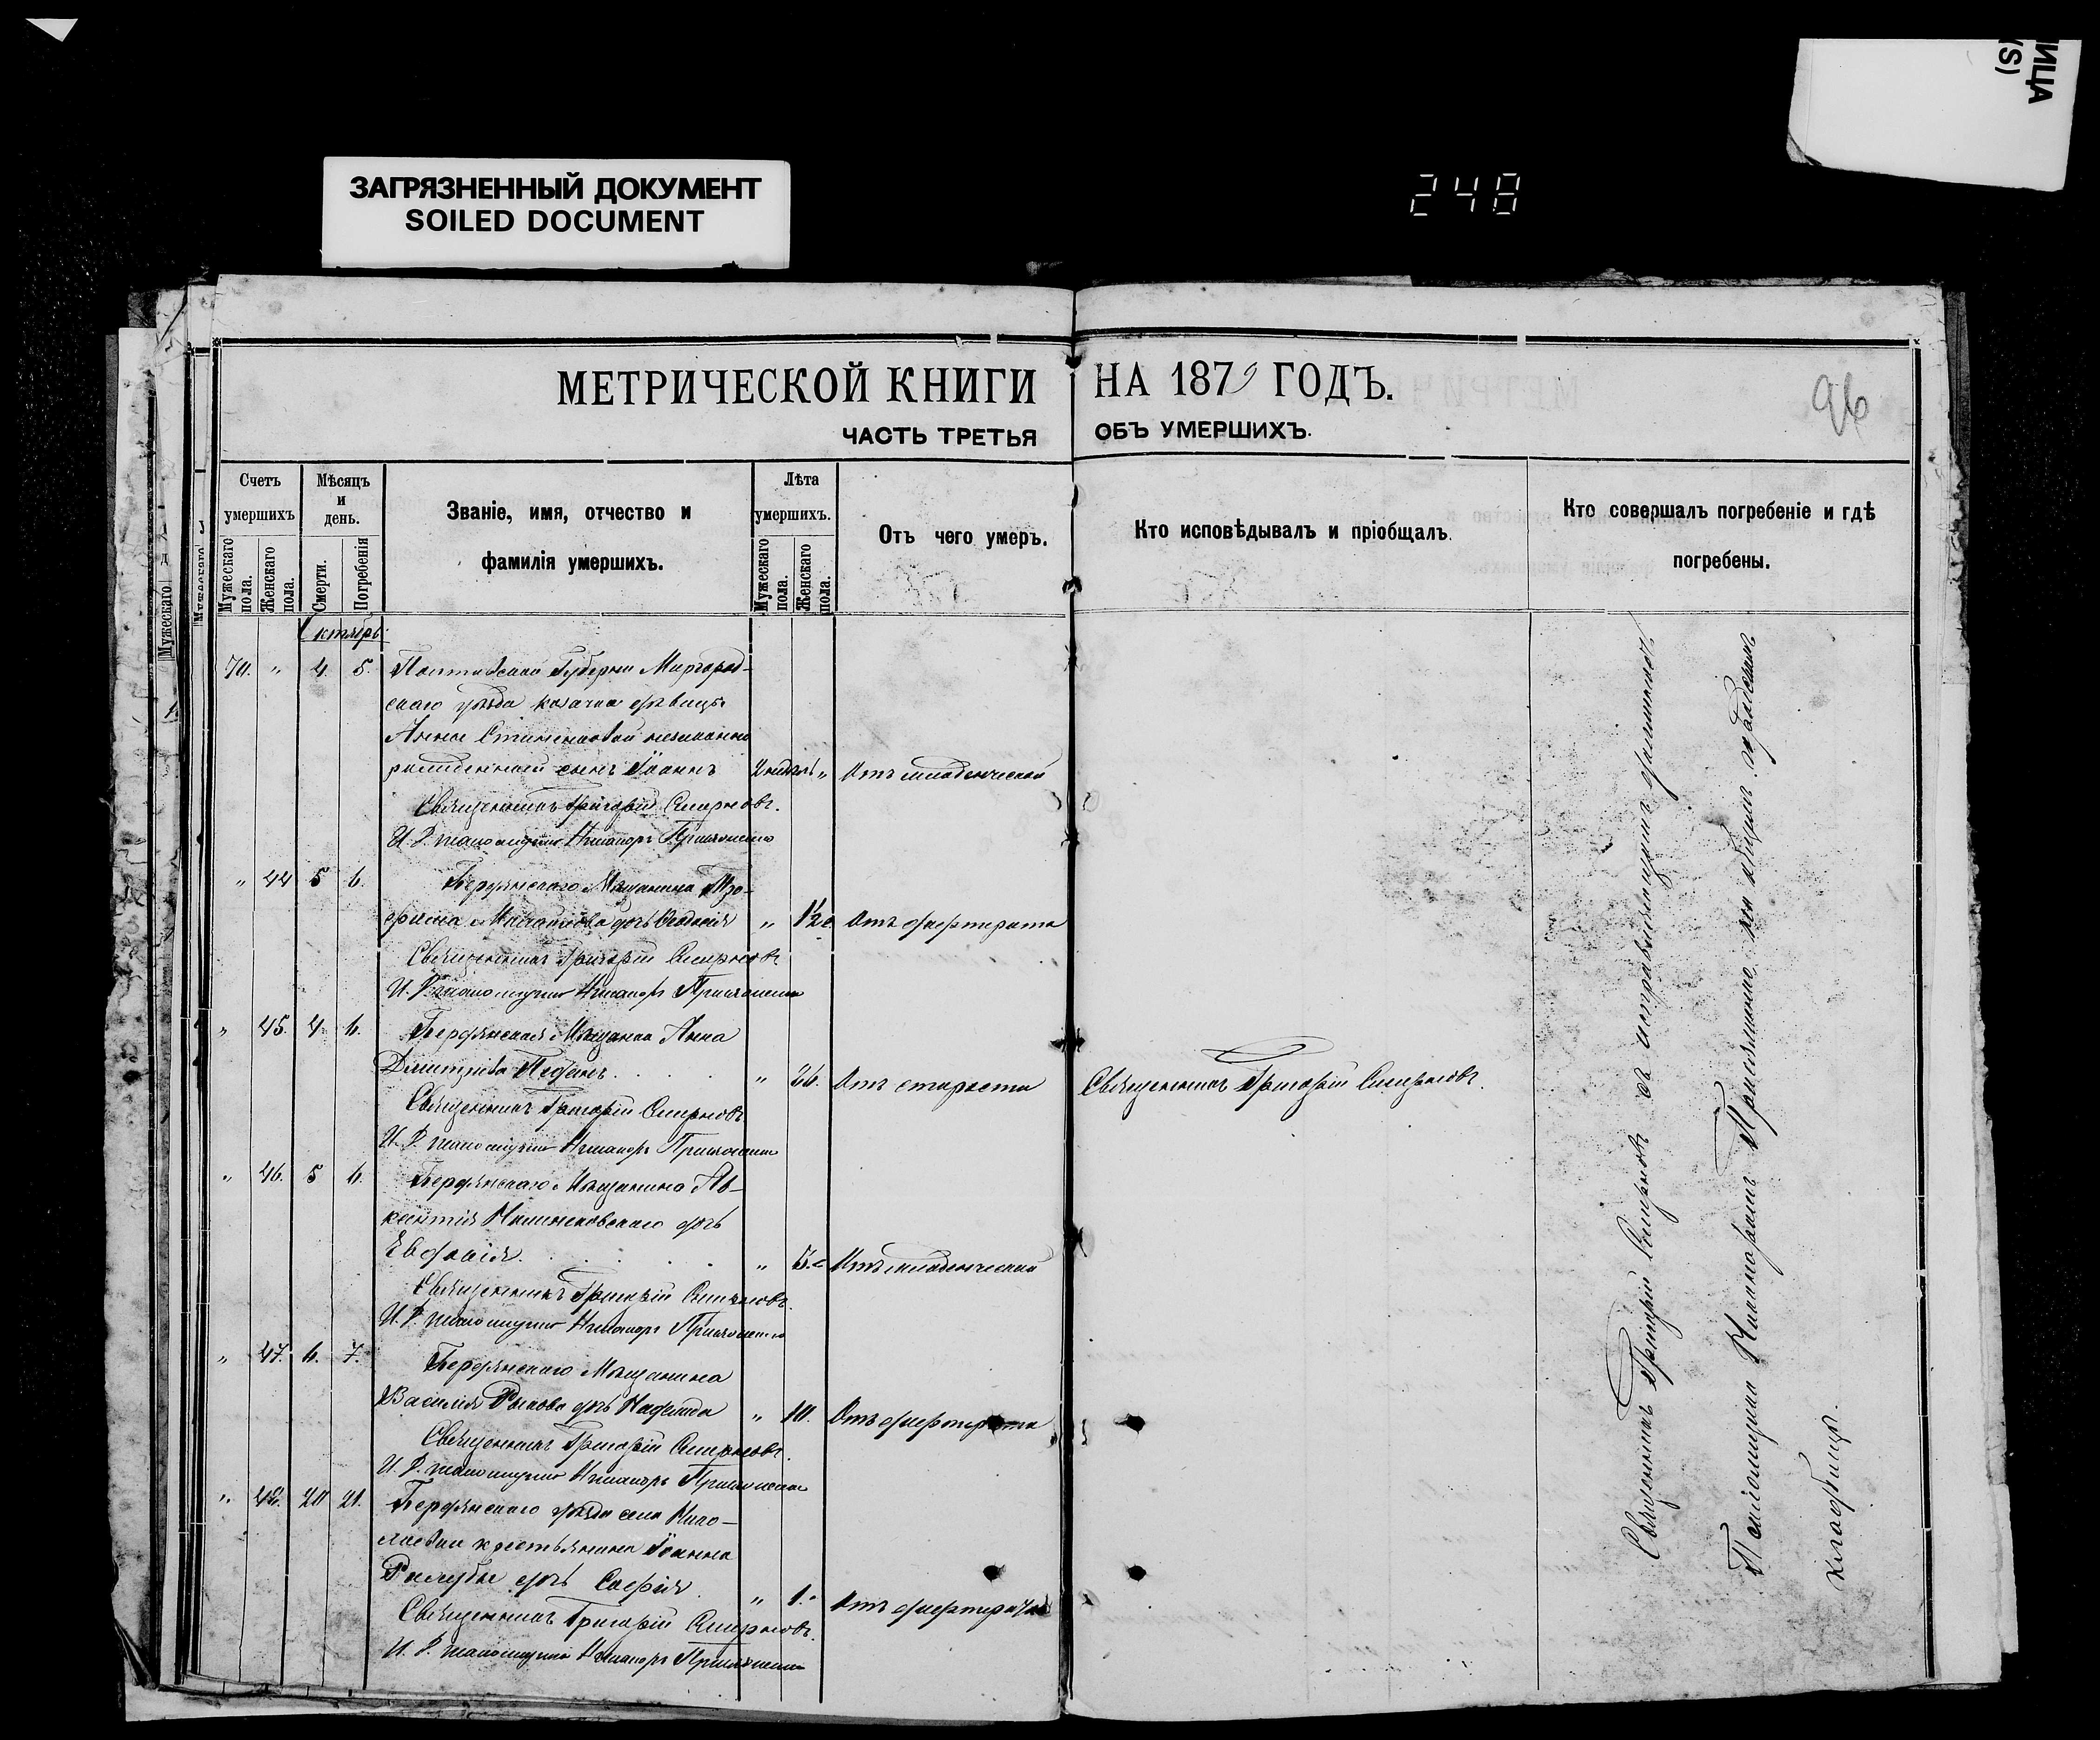 ИЦА
VS)
ЗАГРЯЗНЕННЫЙ ДОКУМЕНТ
SOILED DOCUMENT
248
МЕТРИЧЕСКОЙ КНИГИ НА 1879 ГОДЪ.
96
ЧАСТЬ ТРЕТЬЯ ОБЪ УМЕРШИХЪ.
Счетъ умершихъ
Мужескаго пола.
Женскаго пола.
Мѣсяцъ и день.
Смерти.
Погребенія
Званіе, имя, отчество и
фамилія умершихъ.
Лѣта умершихъ.
Мужескаго пола.
Женскаго пола.
Отъ чего умеръ.
Кто исповѣдывалъ и пріобщалъ.
Кто совершалъ погребеніе и гдѣ
погребены.
Октябрь
70. " 4. 5. Полтавской Губерніи Миргород-
скаго уѣзда козачки дѣвицы
Анны незаконно
рожденный сынъ Іоаннъ " Отъ младенческой
Священникъ Григорій Смирновъ.
И. Д. псаломщика Никаноръ
" 44 5 6. Бердянскаго Мѣщанина Тро-
фима дочь " 1½ Отъ дифтерита
Священникъ Григорій Смирновъ
И. Д. псаломщика Никаноръ
" 45. 4. 6. Бердянская Мѣщанка Анна
Димитріева " 26. Отъ
Священникъ Григорій Смирновъ.
Священникъ Григорій Смирновъ
И. Д. псаломщика Никаноръ
" 46. 5 6. Бердянскаго Мѣщанина Ав-
ксентія дочь
" 5. Отъ младенческой
Священникъ Григорій Смирновъ.
И. Д. псаломщика Никаноръ
" 47. 6. 7. Бердянскаго Мѣщанина
Василія дочь Надежда " 10. Отъ дифтерита
Священникъ Григорій Смирновъ.
И. Д. псаломщика Никаноръ
" 48. 20 21. Бердянскаго уѣзда села Нико-
лаевки крестьянина Іоанна
дочь Софія " 1. Отъ дифтерита
Священникъ Григорій Смирновъ.
И. Д. псаломщика Никаноръ
Священникъ Григорій Смирновъ съ исправляющимъ должность
Псаломщика Никаноромъ на общемъ городскомъ
кладбищѣ.